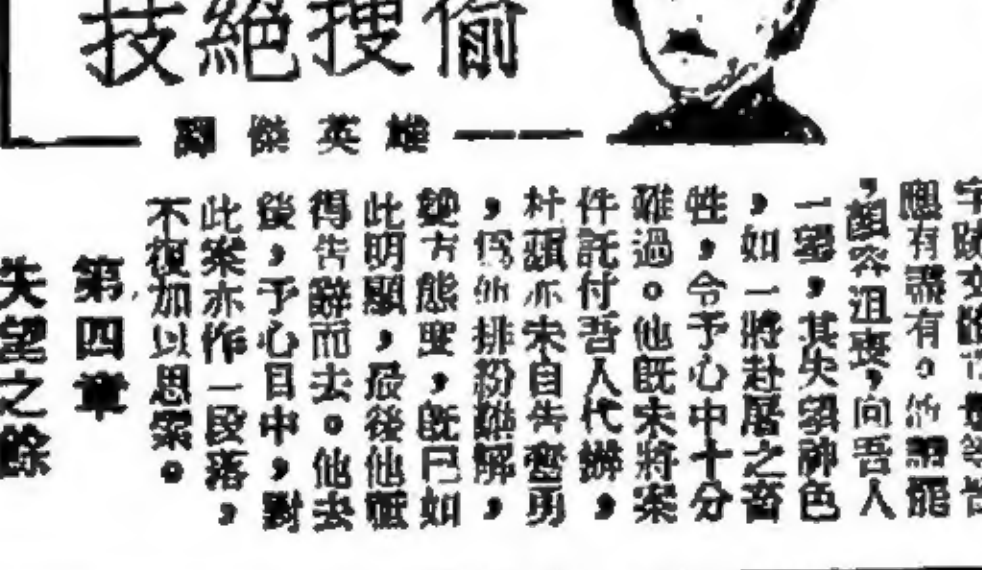 偷搜絕技
雄英傑譯
應有盡有。
,顏容沮喪,向吾人
一望,其失望神色
,如一將赴屠之畜
牲,令予心中十分
難過。他既未將案
件託付吾人代辦,
杜蘋亦未自告奮勇
,爲他排紛難解,
雙方態度,既已如
此明顯,最後他祗
得告辭而去。他去
後,予心目中,對
此案亦作一段落,
不復加以思索。
第四章
失望之餘